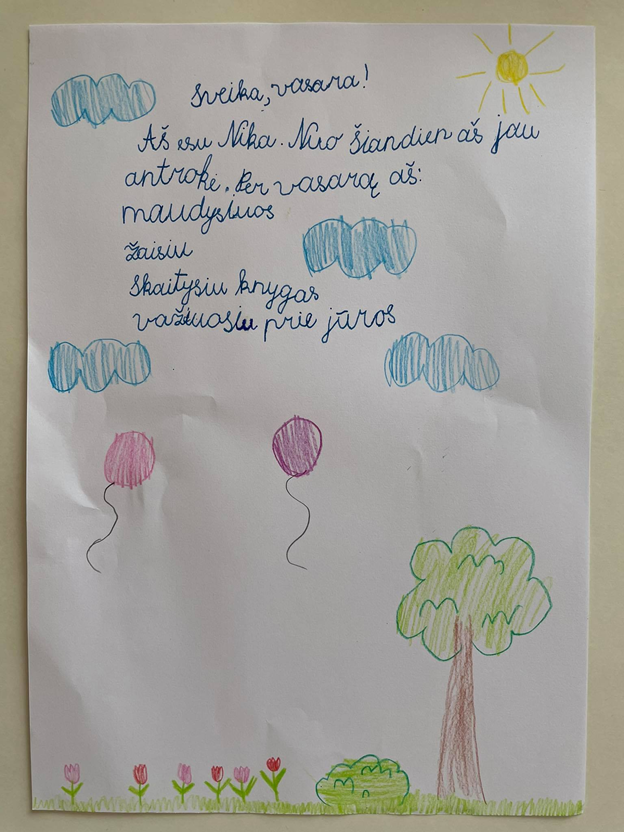 Sveika, vasara!
Aš esu Nika. Nuo šiandien aš jau
antrokė. Per vasarą aš:
maudysiuos
žaisiu
skaitysiu knygas
važiuosiu prie jūros